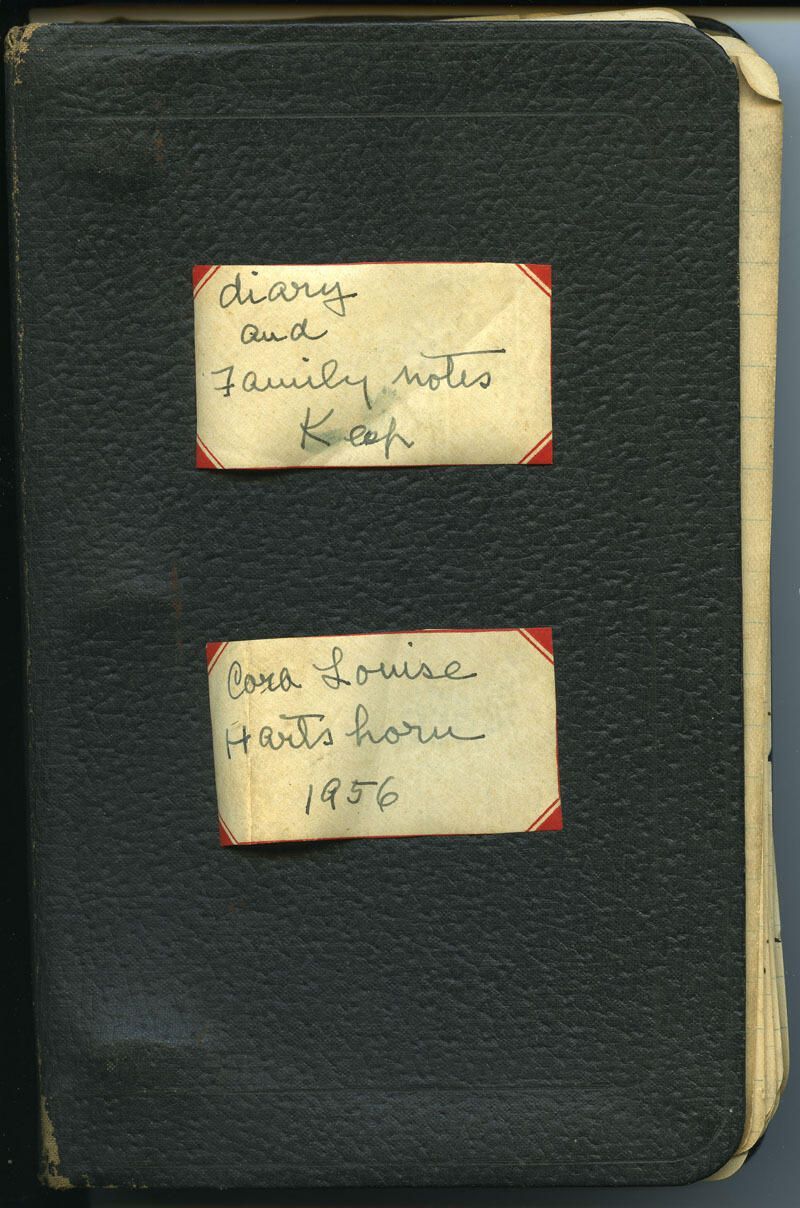 diary
and
Family notes
Keep
Cora Louise
Hartshorn
1956